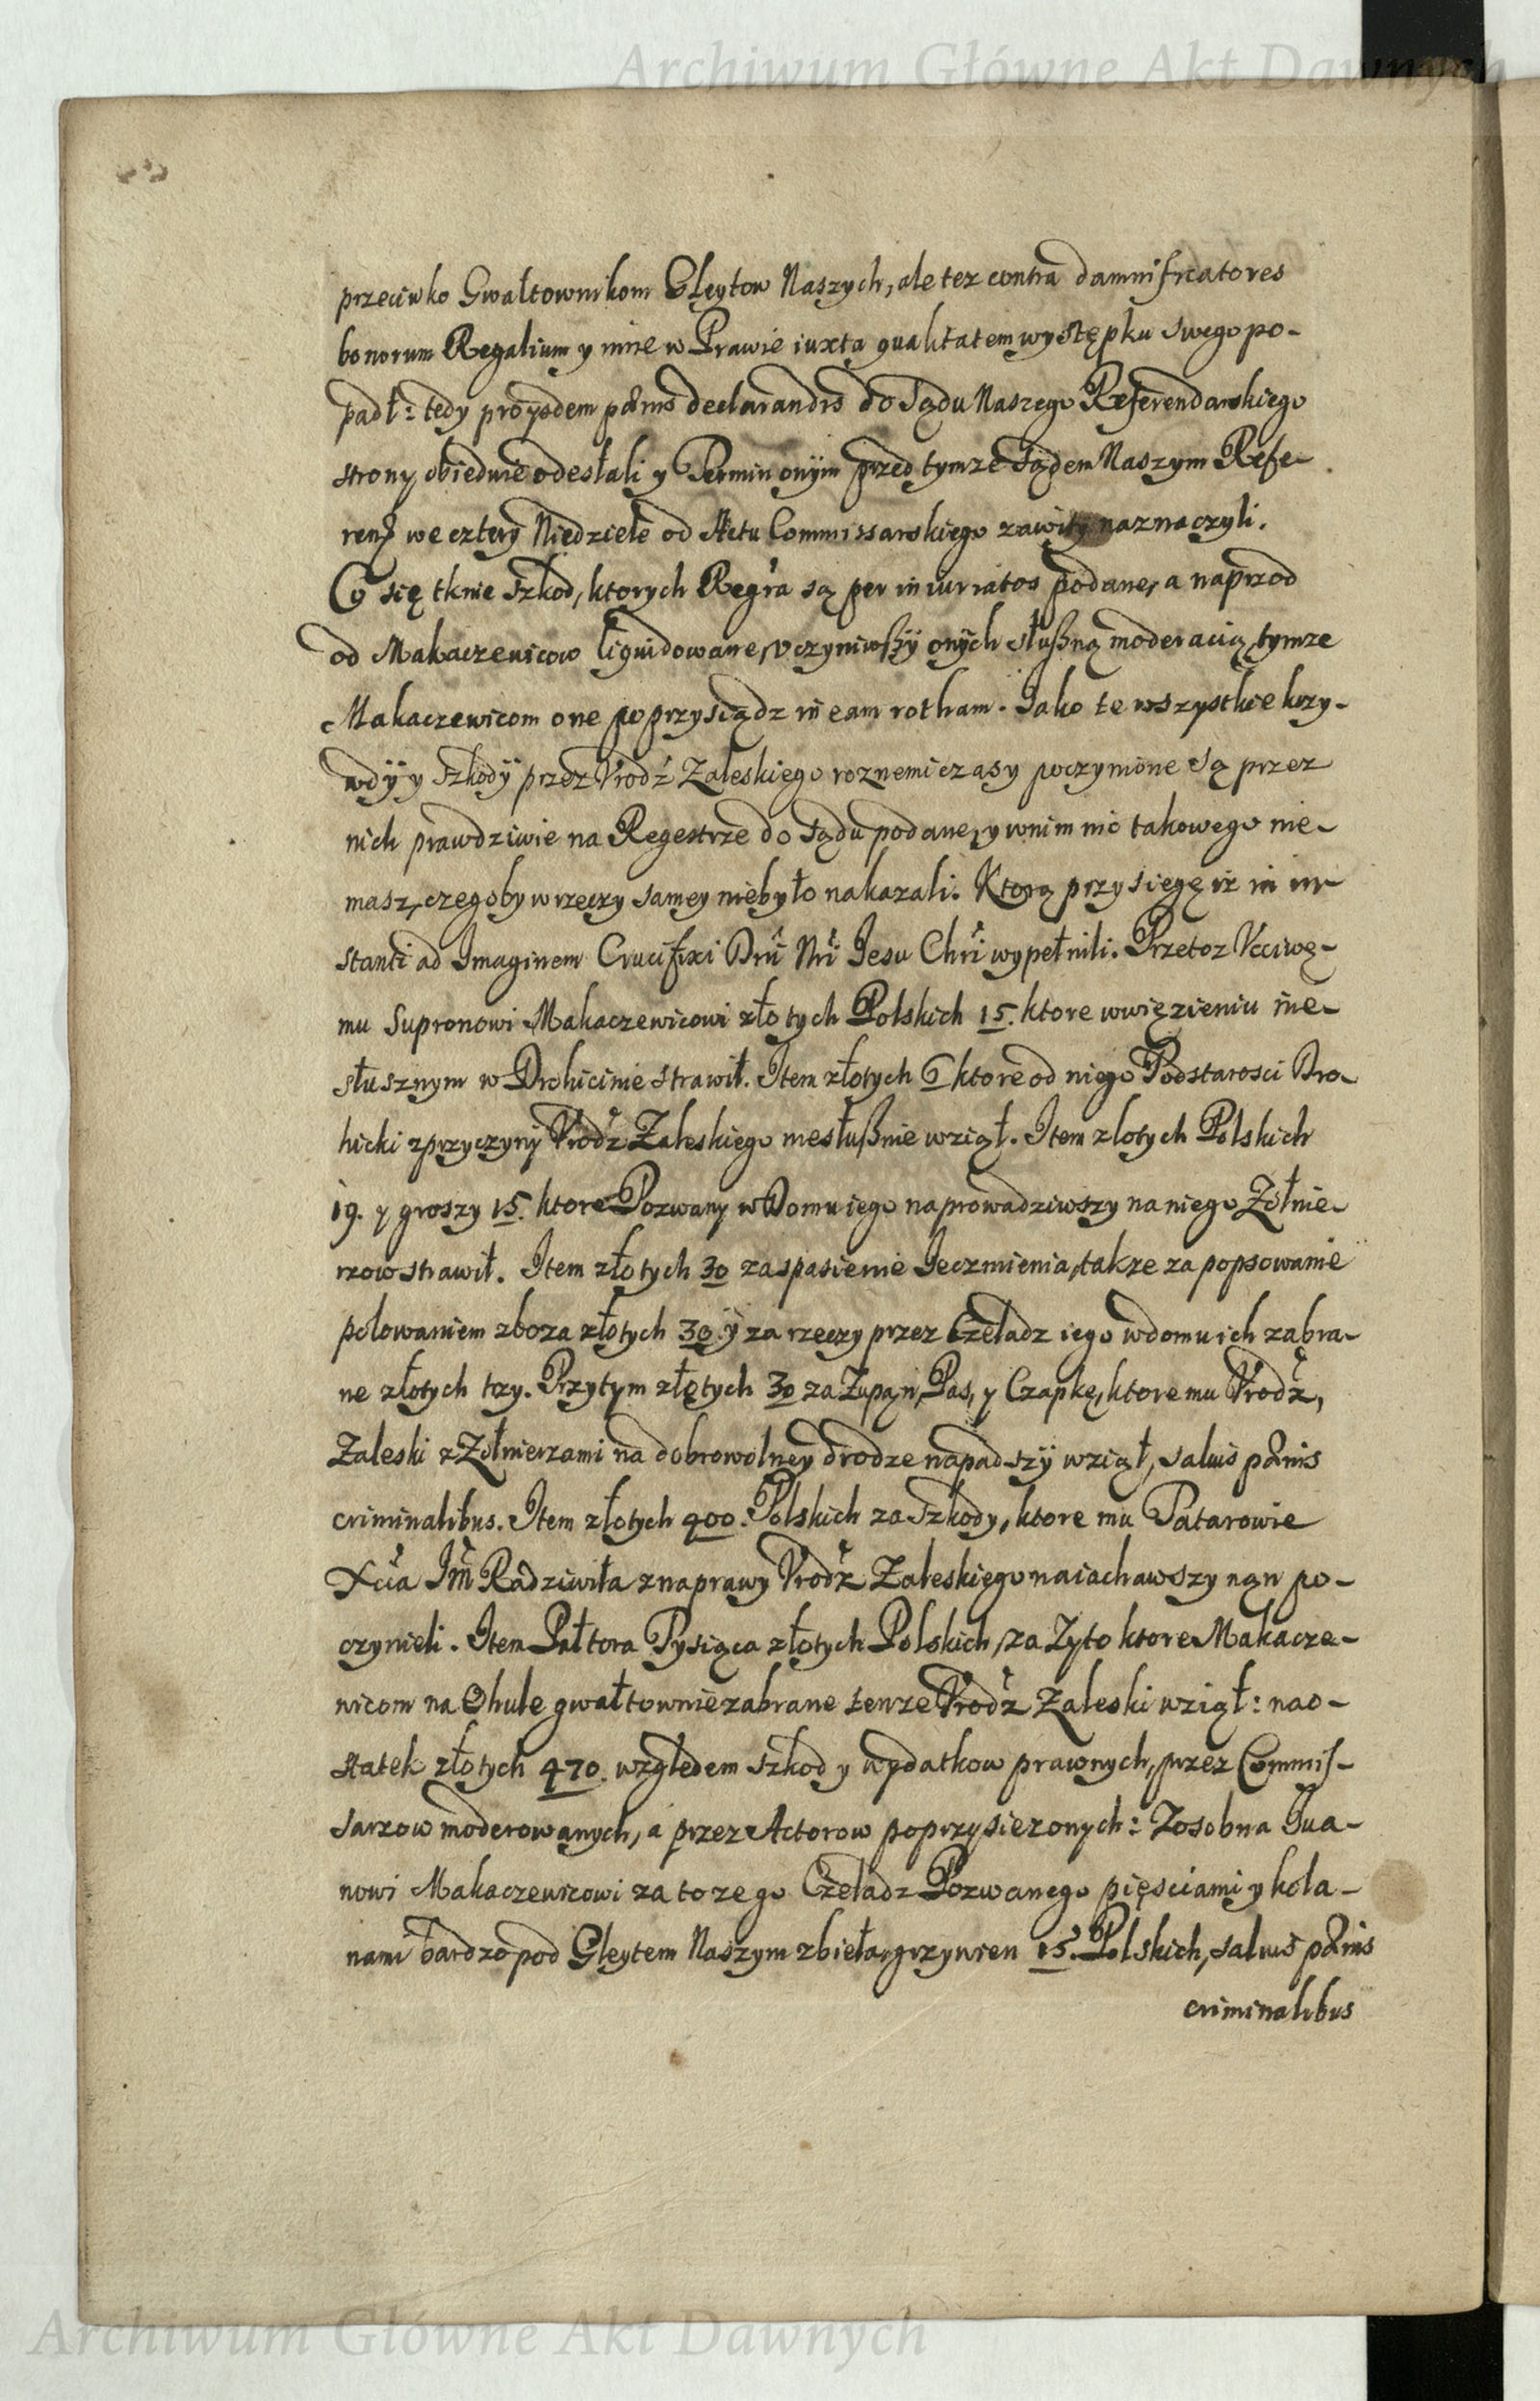 Archiwum Główne Akt Dawnych
przeciwko Gwałtownikom Gleytow Naszych, ale tez contra damnificatores
bonorum Regalium y inne w Prawie iuxta qualitatem występku swego po-
padł: tedy pro ijsdem pœnis declarandis do Sądu Naszego Referendarskiego
strony obiedwie odesłali y Termin onym przed tymze Sądem Naszym Refe-
ren we cztery Niedziele od Actu Commissarskiego zawity naznaczyli.
Co się tknie szkod, ktorych Regra są per iniuriatos podane, a naprzod
od Makaczewicow liquidowane, vczyniwszy onych słuszną moderacią tymze
Makaczewicom one poprzysiądz in eam rotham. Jako te wszystkie krzy-
wdÿ y szkodÿ przez Vrodź Zaleskiego roznemi czasy poczynione są przez
nich prawdziwie na Regestrze do Sądu podane, y wnim nic takowego nie-
masz, czegoby w rzeczy samey niebyło nakazali. Ktorą przysięgę iż in in-
stanti ad Imaginem Crucifixi Dni Nri Jesu Chri wypełnili. Przetoz Vcciwe-
mu Supronowi Makaczewicowi złotych Polskich 15. ktore wwięzieniu nie-
słusznym w Drohicinie strawił. Item złotych 6 ktore od niego Podstarosci Dro-
hicki zprzyczyny Vrodz Zaleskiego niesłusznie wziął. Item zlotych Polskich
19. y groszy 15. ktore Pozwany w Domu iego naprowadziwszy na niego Zołnie-
rzow strawił. Item złotych 30 za spasienie Jeczmienia, takze za popsowanie
polowaniem zboza złotych 30. ÿ za rzeczy przez Czeladz iego wdomu ich zabra-
ne złotych trzy. Przytym złotych 30 za Zupan, Pas, y Czapkę, ktore mu Vrodz,
Zaleski z Zołnierzami na dobrowolney drodze napadszÿ wziął, saluis pœnis
criminalibus. Item złotych 400. Polskich za szkody, ktore mu Tatarowie
Xcia Jm Radziwiła znaprawy Vrodz Zaleskiego naiachawszy nan po-
czynieli. Item Pałtora Tysiąca złotych Polskich, za Zyto ktore Makacze-
wicom na Ohule gwałtownie zabrane tenze Vrodz Zaleski wziął: nao-
statek złotych 470. względem szkod y wydatkow prawnych, przez Commis-
sarzow moderowanych, a przez Actorow poprzysiezonych: Zosobna Jua-
nowi Makaczewicowi za to ze go Czeladz Pozwanego pięsciami y kola-
nami bardzo pod Gleytem Naszym zbieła, grzywien 15. Polskich, saluis pœnis
criminalibus
Archiwum Główne Akt Dawnych